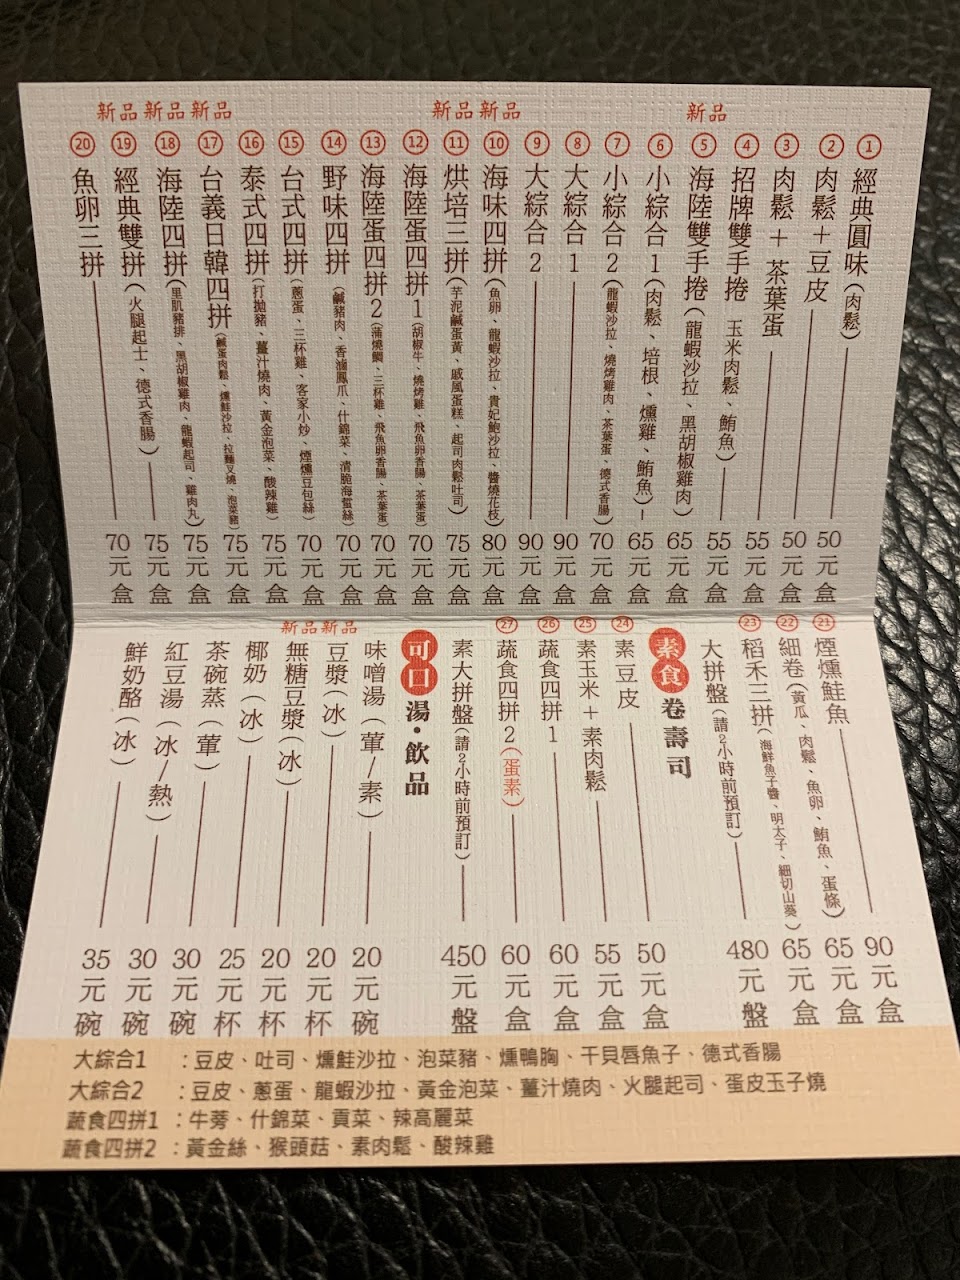 ① 經典圓味(肉鬆) 50元盒
② 肉鬆+豆皮 50元盒
③ 肉鬆+茶葉蛋 55元盒
④ 招牌雙手捲 玉米肉鬆、鮪魚) 55元盒
新品 ⑤ 海陸雙手捲(龍蝦沙拉、黑胡椒雞肉 65元盒
⑥ 小綜合1(肉鬆、培根、燻雞、鮪魚) 65元盒
⑦ 小綜合2(龍蝦沙拉、燒烤雞肉、茶葉蛋、德式香腸) 70元盒
⑧ 大綜合1 90元盒
⑨ 大綜合2 90元盒
新品 ⑩ 海味四拼(魚卵、龍蝦沙拉、貴妃鮑沙拉、醬燒花枝) 80元盒
新品 ⑪ 烘培三拼(芋泥鹹蛋黃、戚風蛋糕、起司肉鬆吐司) 75元盒
⑫ 海陸蛋四拼1(胡椒牛、燒烤雞、飛魚卵香腸、茶葉蛋) 70元盒
⑬ 海陸蛋四拼2(蒲燒鯛、三杯雞、飛魚卵香腸、茶葉蛋) 70元盒
⑭ 野味四拼(鹹豬肉、香滷鳳爪、什錦菜、清脆海蜇絲) 70元盒
⑮ 台式四拼(蔥蛋、三杯雞、客家小炒、煙燻豆包絲) 70元盒
⑯ 泰式四拼(打拋豬、薑汁燒肉、黃金泡菜、酸辣雞) 75元盒
新品 ⑰ 台義日韓四拼(鹹蛋肉鬆、燻鮭沙拉、拉麵叉燒、泡菜豬) 75元盒
新品 ⑱ 海陸四拼(里肌豬排、黑胡椒雞肉、龍蝦起司、雞肉丸) 75元盒
新品 ⑲ 經典雙拼(火腿起士、德式香腸) 75元盒
⑳ 魚卵三拼 70元盒
㉑ 煙燻鮭魚 90元盒
㉒ 細卷(黃瓜、肉鬆、魚卵、鮪魚、蛋條) 65元盒
㉓ 稻禾三拼(海鮮魚子醬、明太子、細切山葵) 65元盒
大拼盤(請2小時前預訂) 480元盤
素食卷壽司
㉔ 素豆皮 50元盒
㉕ 素玉米+素肉鬆 55元盒
㉖ 蔬食四拼1 60元盒
㉗ 蔬食四拼2(蛋素) 60元盒
素大拼盤(請2小時前預訂) 450元盤
可口湯・飲品
味噌湯(葷/素) 20元碗
新品 豆漿(冰) 20元杯
新品 無糖豆漿(冰) 20元杯
椰奶(冰) 25元杯
茶碗蒸(葷) 30元碗
紅豆湯(冰/熱) 30元碗
鮮奶酪(冰) 35元碗
大綜合1 :豆皮、吐司、燻鮭沙拉、泡菜豬、燻鴨胸、干貝唇魚子、德式香腸
大綜合2 :豆皮、蔥蛋、龍蝦沙拉、黃金泡菜、薑汁燒肉、火腿起司、蛋皮玉子燒
蔬食四拼1 :牛蒡、什錦菜、貢菜、辣高麗菜
蔬食四拼2 :黃金絲、猴頭菇、素肉鬆、酸辣雞